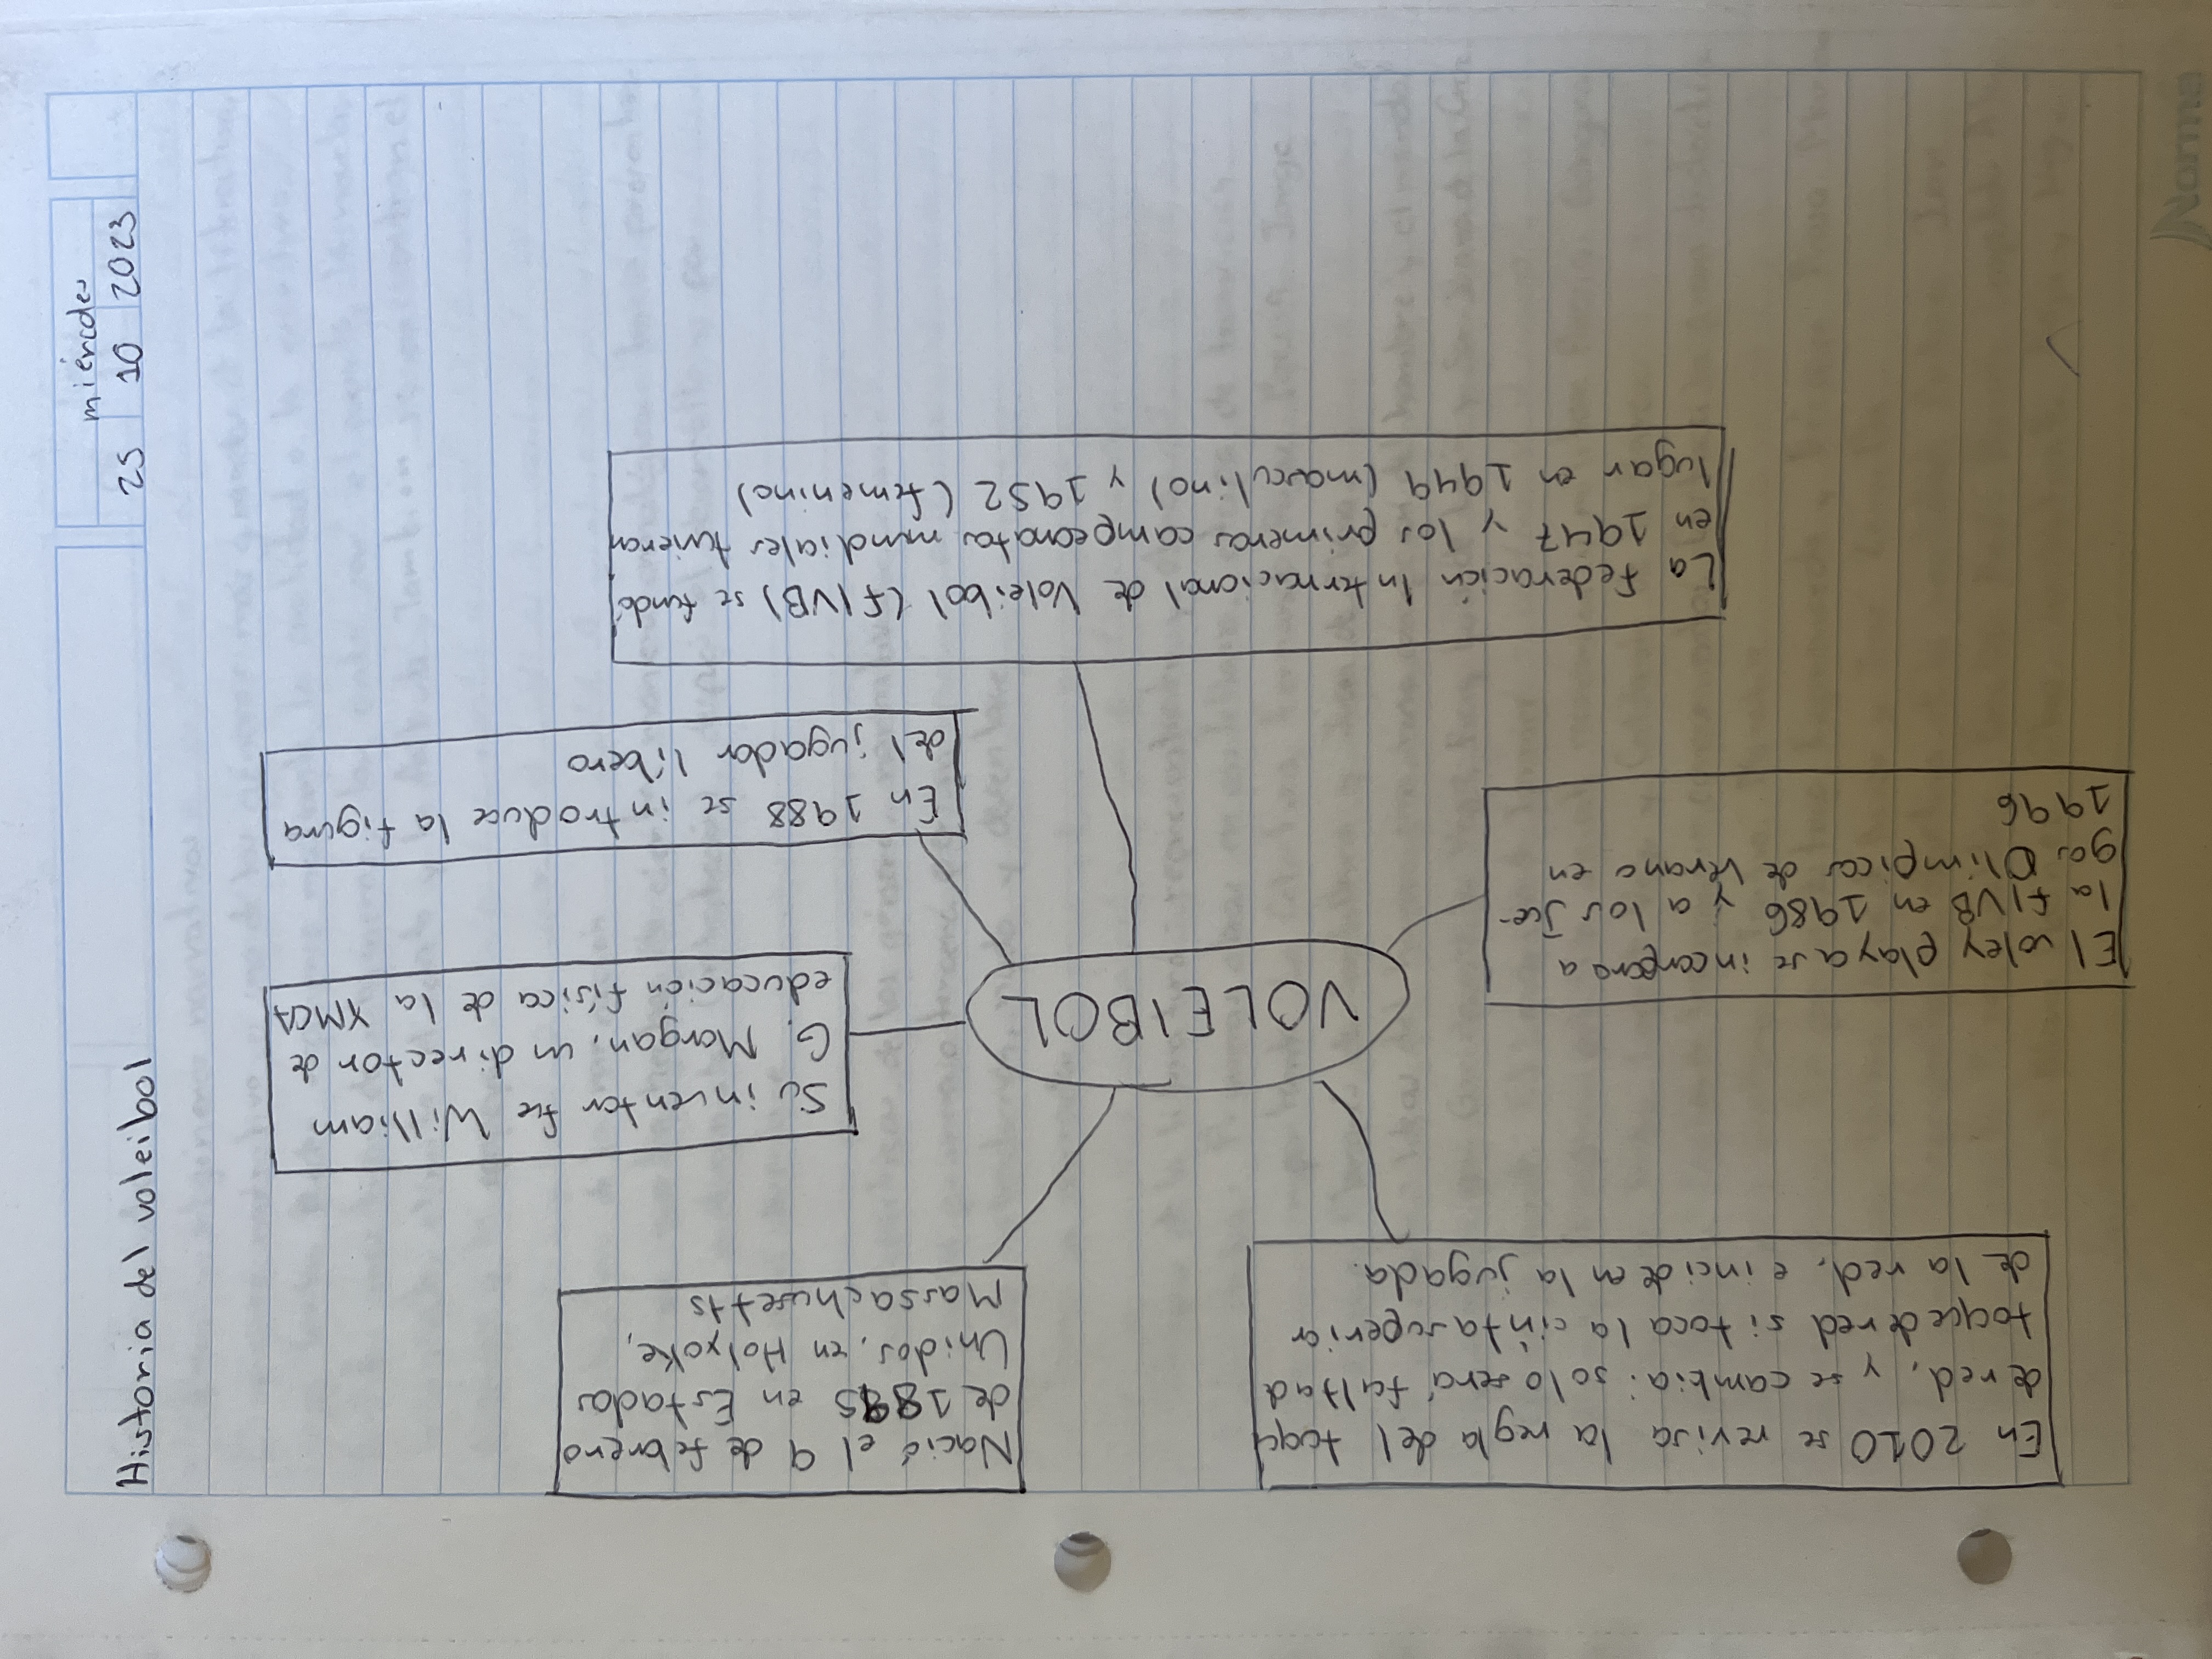 Historia del voleibol
miércoles
25 10 2023
Norma
VOLEIBOL
En 2010 se revisa la regla del toque
de red, y se cambia: solo será faltad
toque de red si toca la cinta superior
de la red, e inciden la jugada.
Nació el 9 de febrero
de 1895 en Estados
Unidos, en Holyoke,
Massachusetts
El voley playa se incorpora a
la FIVB en 1986 y a los Jue-
gos Olímpicos de Verano en
1996
Su inventor fue William
G. Morgan, un director de
educación física de la YMCA
En 1988 se introduce la figura
del jugador líbero
La Federación Internacional de Voleibol (FIVB) se fundó
en 1947 y los primeros campeonatos mundiales tuvieron
lugar en 1949 (masculino) y 1952 (femenino)